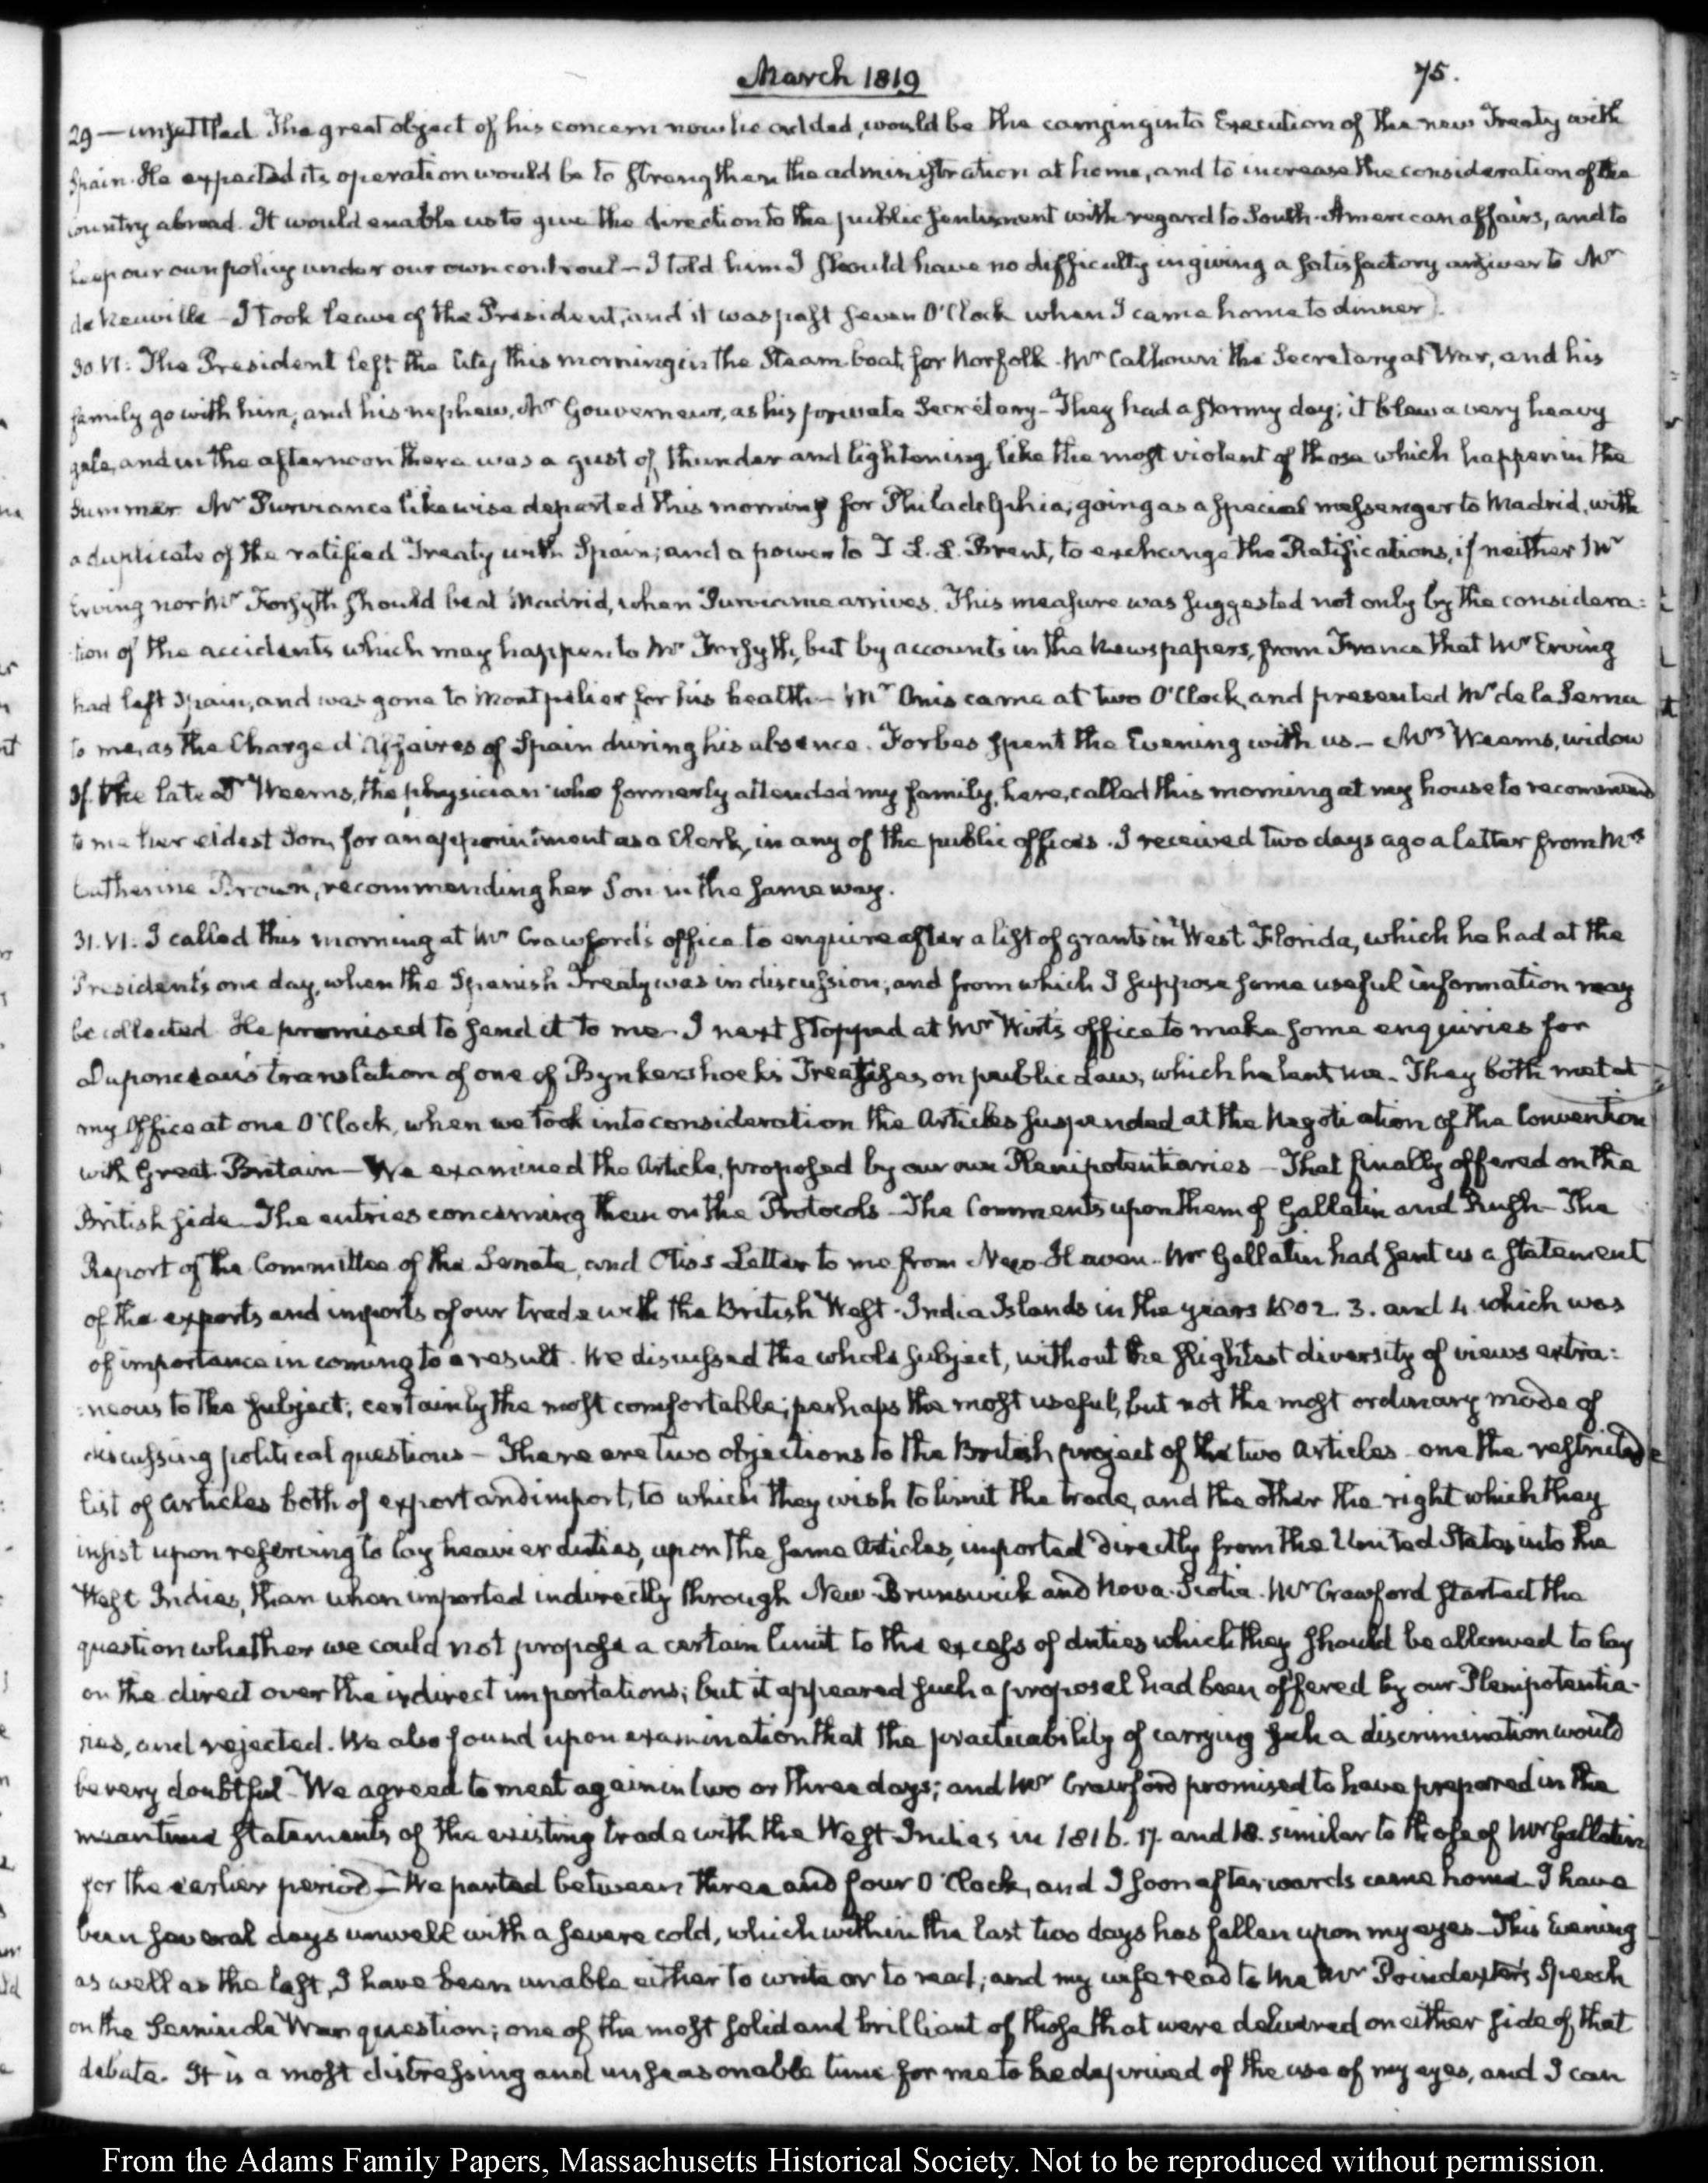 March 1819
75.
29 — unsettled. The great object of his concern now he added, would be the carrying into Execution of the new Treaty with
Spain. He expected its operation would be to strengthen the administration at home, and to increase the consideration of the
country abroad. It would enable us to give the direction to the public sentiment with regard to South-American affairs, and to
keep our own policy under our own controul — I told him I should have no difficulty in giving a satisfactory answer to Mr
de Neuville — I took leave of the President, and it was past seven O'Clock when I came home to dinner.
30. VI: The President left the City this morning in the Steam-boat, for Norfolk. Mr Calhoun the Secretary of War, and his
family go with him; and his nephew, Mr Gouverneur, as his private Secretary — They had a stormy day; it blew a very heavy
gale, and in the afternoon there was a gust of thunder and lightening, like the most violent of those which happen in the
Summer. Mr Purviance likewise departed this morning for Philadelphia; going as a special messenger to Madrid, with
a duplicate of the ratified Treaty with Spain; and a power to T. L. L. Brent, to exchange the Ratifications, if neither Mr
Erving nor Mr Forsyth should be at Madrid, when Purviance arrives. This measure was suggested not only by the considera:
:tion of the accidents which may happen to Mr Forsyth, but by accounts in the Newspapers, from France that Mr Erving
had left Spain, and was gone to Montpelier for his health — Mr Onis came at two O'Clock, and presented Mr de la Serna
to me, as the Charge d'Affaires of Spain during his absence. Forbes spent the Evening with us. — Mrs Weems, widow
of the late Dr Weems, the physician who formerly attended my family, here, called this morning at my house to recommend
to me her eldest Son, for an appointment as a Clerk, in any of the public offices. I received two days ago a letter from Mrs
Catherine Brown, recommending her Son in the same way.
31. VI: I called this morning at Mr Crawford's office to enquire after a list of grants in West Florida, which he had at the
President's one day, when the Spanish Treaty was in discussion; and from which I suppose some useful information may
be collected. He promised to send it to me. I next stopped at Mr Wirt's office to make some enquiries for
Duponceau's translation of one of Bynkershoek's Treatises on public Law, which he lent me. They both met at
my Office at one O'Clock, when we took into consideration the Articles suspended at the Negotiation of the Convention
with Great-Britain — We examined the Article, proposed by our own Plenipotentiaries — That finally offered on the
British side — The entries concerning them on the Protocols — The Comments upon them of Gallatin and Rush — The
Report of the Committee of the Senate, and Otis's Letter to me from New-Haven. Mr Gallatin had sent us a statement
of the exports and imports of our trade with the British West-India Islands in the years 1802. 3. and 4. which was
of importance in coming to a result. We discussed the whole subject, without the slightest diversity of views extra:
:neous to the subject; certainly the most comfortable; perhaps the most useful, but not the most ordinary mode of
discussing political questions — There are two objections to the British project of the two Articles — one the restricted
list of Articles both of export and import, to which they wish to limit the trade, and the other the right which they
insist upon reserving to lay heavier duties, upon the same Articles, imported directly from the United States into the
West Indies, than when imported indirectly through New-Brunswick and Nova-Scotia. Mr Crawford started the
question whether we could not propose a certain limit to the excess of duties which they should be allowed to lay
on the direct over the indirect importations; but it appeared such a proposal had been offered by our Plenipotentia-
ries, and rejected. We also found upon examination that the practicability of carrying such a discrimination would
be very doubtful — We agreed to meet again in two or three days; and Mr Crawford promised to have prepared in the
meantime statements of the existing trade with the West-Indies in 1816. 17. and 18. similar to those of Mr Gallatin
for the earlier period — We parted between three and four O'Clock, and I soon afterwards came home. I have
been several days unwell with a severe cold, which within the last two days has fallen upon my eyes — This Evening
as well as the last, I have been unable either to write or to read; and my wife read to me Mr Poindexter's Speech
on the Seminole War question; one of the most solid and brilliant of those that were delivered on either side of that
debate. It is a most distressing and unseasonable time for me to be deprived of the use of my eyes, and I can
From the Adams Family Papers, Massachusetts Historical Society. Not to be reproduced without permission.